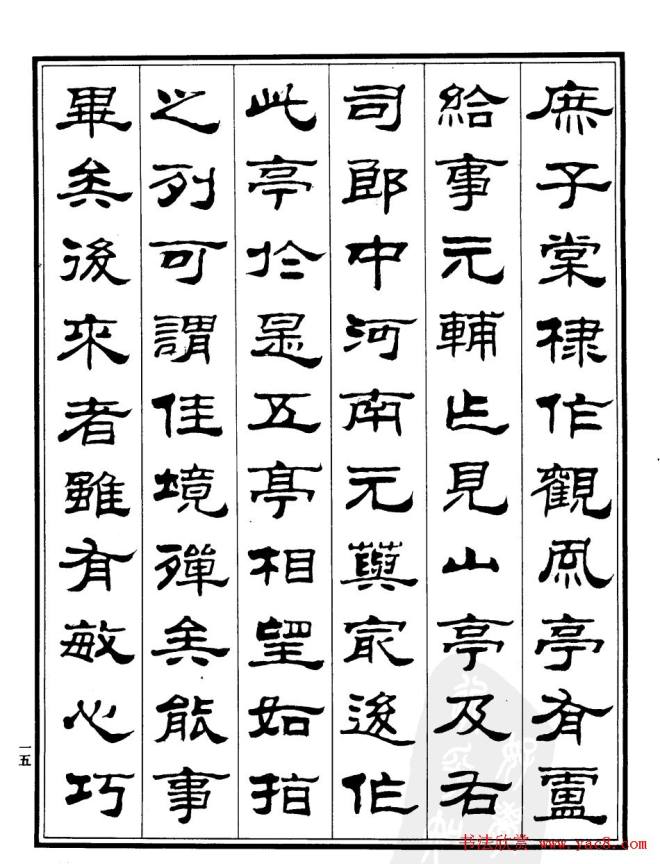 庶子棠棣作觀風亭有盧
給事元輔作見山亭及右
司郎中河南元藇冣後作
此亭於是五亭相望如指
之列可謂佳境殫矣能事
畢矣後來者雖有敏心巧
一五
书法欣赏 www.yac8.com